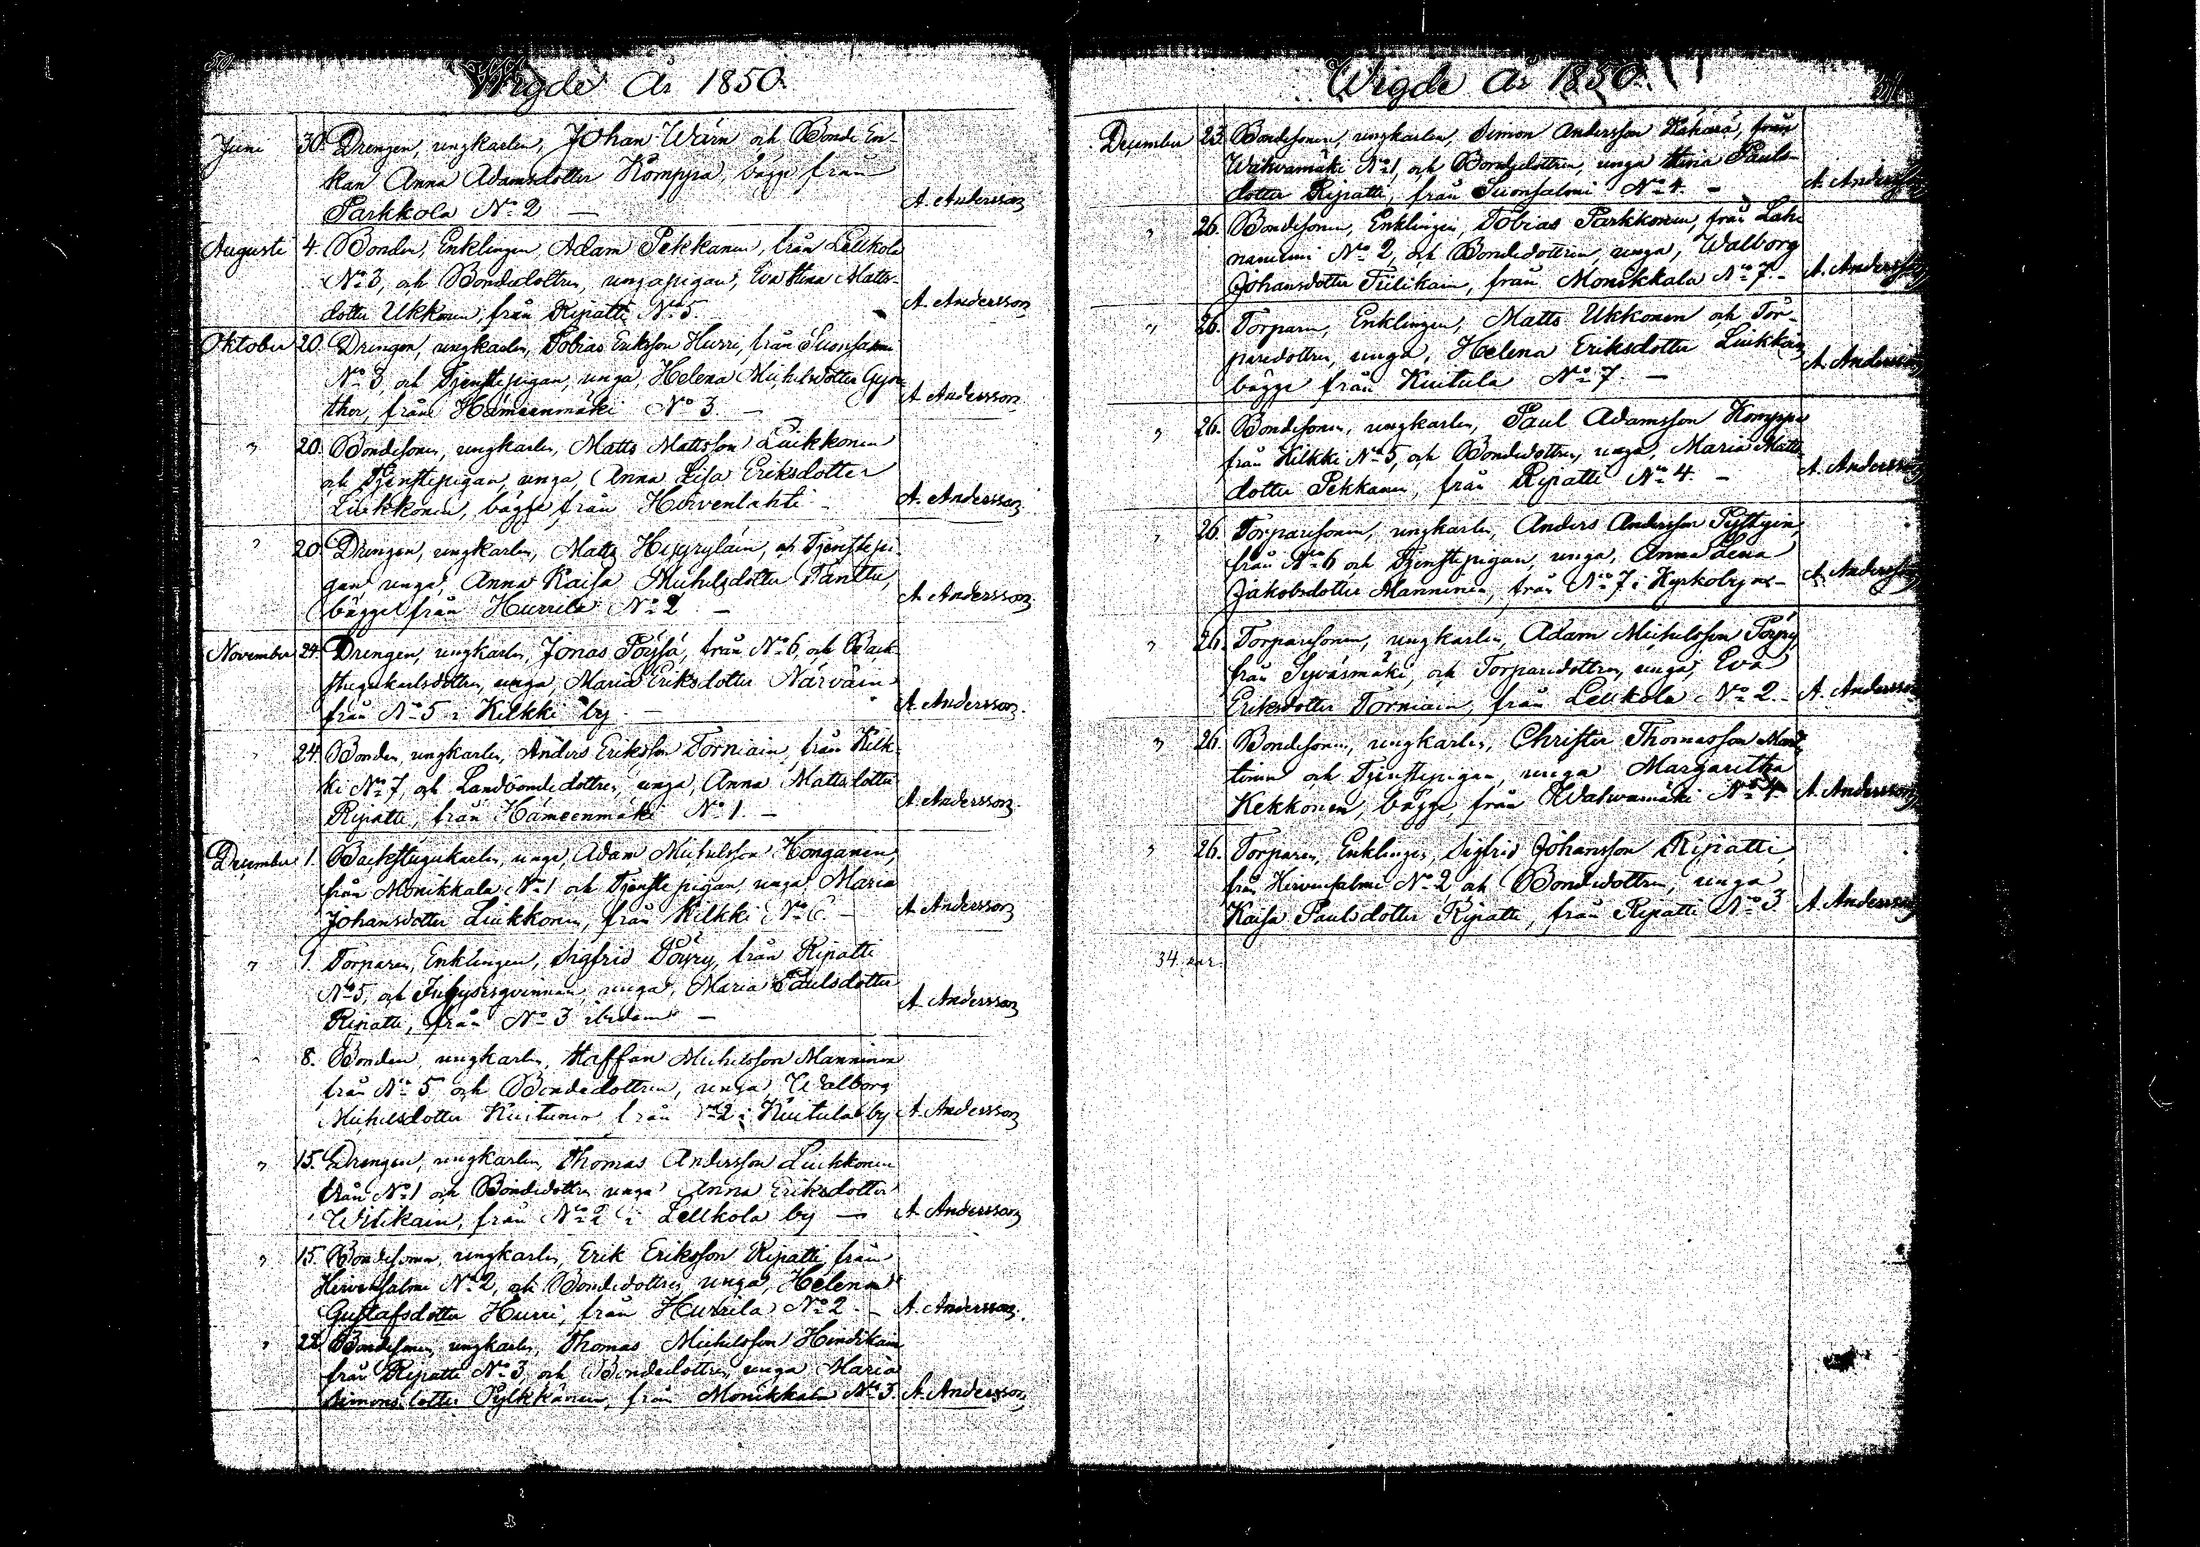 50.
Wigde År 1850.
Juni 30. Drengen, ungkarlen, Johan Wärn och Bonde En-
kan Anna Adamsdotter Komppa, bägge från
Parkkola No 2 — A. Andersson
Augusti 4. Bonden, Enklingen, Adam Pekkanen, från Lelkola
No 3, och Bondedottren, ungapigan, Eva Stina Matts-
dotter Ukkonen, från Ripatti No 5. A. Andersson
Oktober 20. Drengen, ungkarlen, Tobias Eriksson Hurri, från Suonsalmi
No 3, och Tjenstepigan, unga, Helena Michelsdotter
från Hämeenmäki No 3. — A. Andersson
" 20. Bondesonen, ungkarlen, Matts Mattsson Liukkonen
och Tjenstepigan, unga, Anna Lisa Eriksdotter
Liukkonen, bägge från Hirvenlahti - A. Andersson
" 20. Drengen, ungkarlen, Matts Hyyryläin, och Tjenstepi-
gan, unga, Anna Kaisa Michelsdotter Tanttu,
bägge från Hurrila No 2 — A. Andersson
November 24. Drengen, ungkarlen, Jonas Pöysä, från No 6, och Back-
stugukarlsdottren, unga, Maria Eriksdotter Närväin
från No 5 i Kilkki by — A. Andersson
24. Bonden, ungkarlen, Anders Eriksson Torniain, från Kilk-
ki No 7, och Landbondedottren, unga, Anna Mattsdotter
Ripatti, från Hämeenmäki No 1. — A. Andersson
December 1. Backstugukarlen, unge, Adam Michelsson Honganen,
från Monikkala No 1 och Tjenstepigan, unga, Maria
Johansdotter Liukkonen, från Kilkki No 6. — A. Andersson
" 1. Torparen, Enklingen, Sigfrid Pöyry, från Ripatti
No 5, och Inhysesqvinnan, unga, Maria Paulsdotter
Ripatti, från No 3 ibidem — A. Andersson
" 8. Bonden, ungkarlen, Staffan Michelsson Manninen
från No 5 och Bondedottren, unga, Walborg
Michelsdotter Kuitunen från No 2 i Kuitula by A. Andersson
" 15. Drengen, ungkarlen, Thomas Andersson Liukkonen
från No 1 och Bondedottren unga Anna Eriksdotter
Witikain, från No 2 i Lelkola by — A. Andersson
" 15. Bondesonen, ungkarlen, Erik Eriksson Ripatti från
Hirvensalmi No 2, och Bondedottren, unga, Helena
Gustafsdotter Hurri, från Hurrila No 2. — A. Andersson.
" 22. Bondesonen, ungkarlen, Thomas Michelsson Hindikain
från Ripatti No 3, och Bondedottren, unga Maria
Simonsdotter Pylkkänen, från Monikkala No 3. A. Andersson
Wigde År 1850.
51.
December 23. Bondesonen, ungkarlen, Simon Andersson Kähärä, från
Wahvamäki No 1, och Bondedottren, unga Stina Pauls-
dotter Ripatti, från Suonsalmi No 4. — A. Andersson
" 26. Bondesonen, Enklingen, Tobias Parkkonen, från Lah-
naniemi No 2, och Bondedottren, unga, Walborg
Johansdotter Tiilikain, från Monikkala No 7. — A. Andersson
" 26. Torparn, Enklingen, Matts Ukkonen och Tor-
paredottren, unga, Helena Eriksdotter Liukkan
bägge från Kuitula No 7. — A. Andersson
" 26. Bondesonen, ungkarlen, Paul Adamsson Komppa
från Kilkki No 5, och Bondedottren, unga, Maria Matts
dotter Pekkanen, från Ripatti No 4. — A. Andersson
" 26. Torparesonen, ungkarlen, Anders Andersson
från No 6 och Tjenstepigan, unga, Anna Lena
Jakobsdotter Manninen, från No 7 i Kyrkobyn. — A. Andersson
" 26. Torparesonen, ungkarlen, Adam Michelsson Pöyry,
från Syväsmäki, och Torparedottren, unga, Eva
Eriksdotter Torniain, från Lelkola No 2. — A. Andersson
" 26. Bondesonen, ungkarlen, Christer Thomasson
och Tjenstepigan, unga Margaretha
Kekkonen, bägge från Wahvamäki No 4. A. Andersson
" 26. Torparen, Enklingen, Sigfrid Johansson Ripatti,
från Hirvensalmi No 2 och Bondedottren, unga
Kaisa Paulsdotter Ripatti, från Ripatti No 3 A. Andersson
34 par.